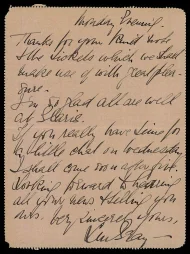 Monday Evening.
Thanks for your kind note
& the tickets which we shall
make use of with great plea-
sure.
I'm so glad all are well
at
If you really have time for
a little chat on Wednesday
I shall come soon after five.
Looking forward to hearing
all your news & telling you
ours. Very sincerely yours,